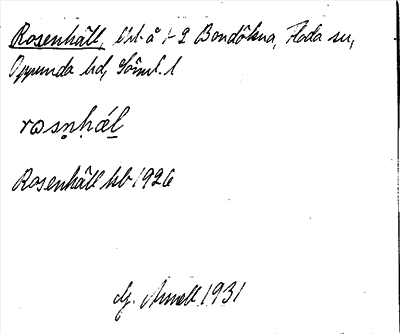 Rosenhäll, lht å 1-2 Bondökna, Floda sn,
Oppunda hd, Söml. l
rosnhäl
Rosenhäll hb 1926
G. Arnell 1931